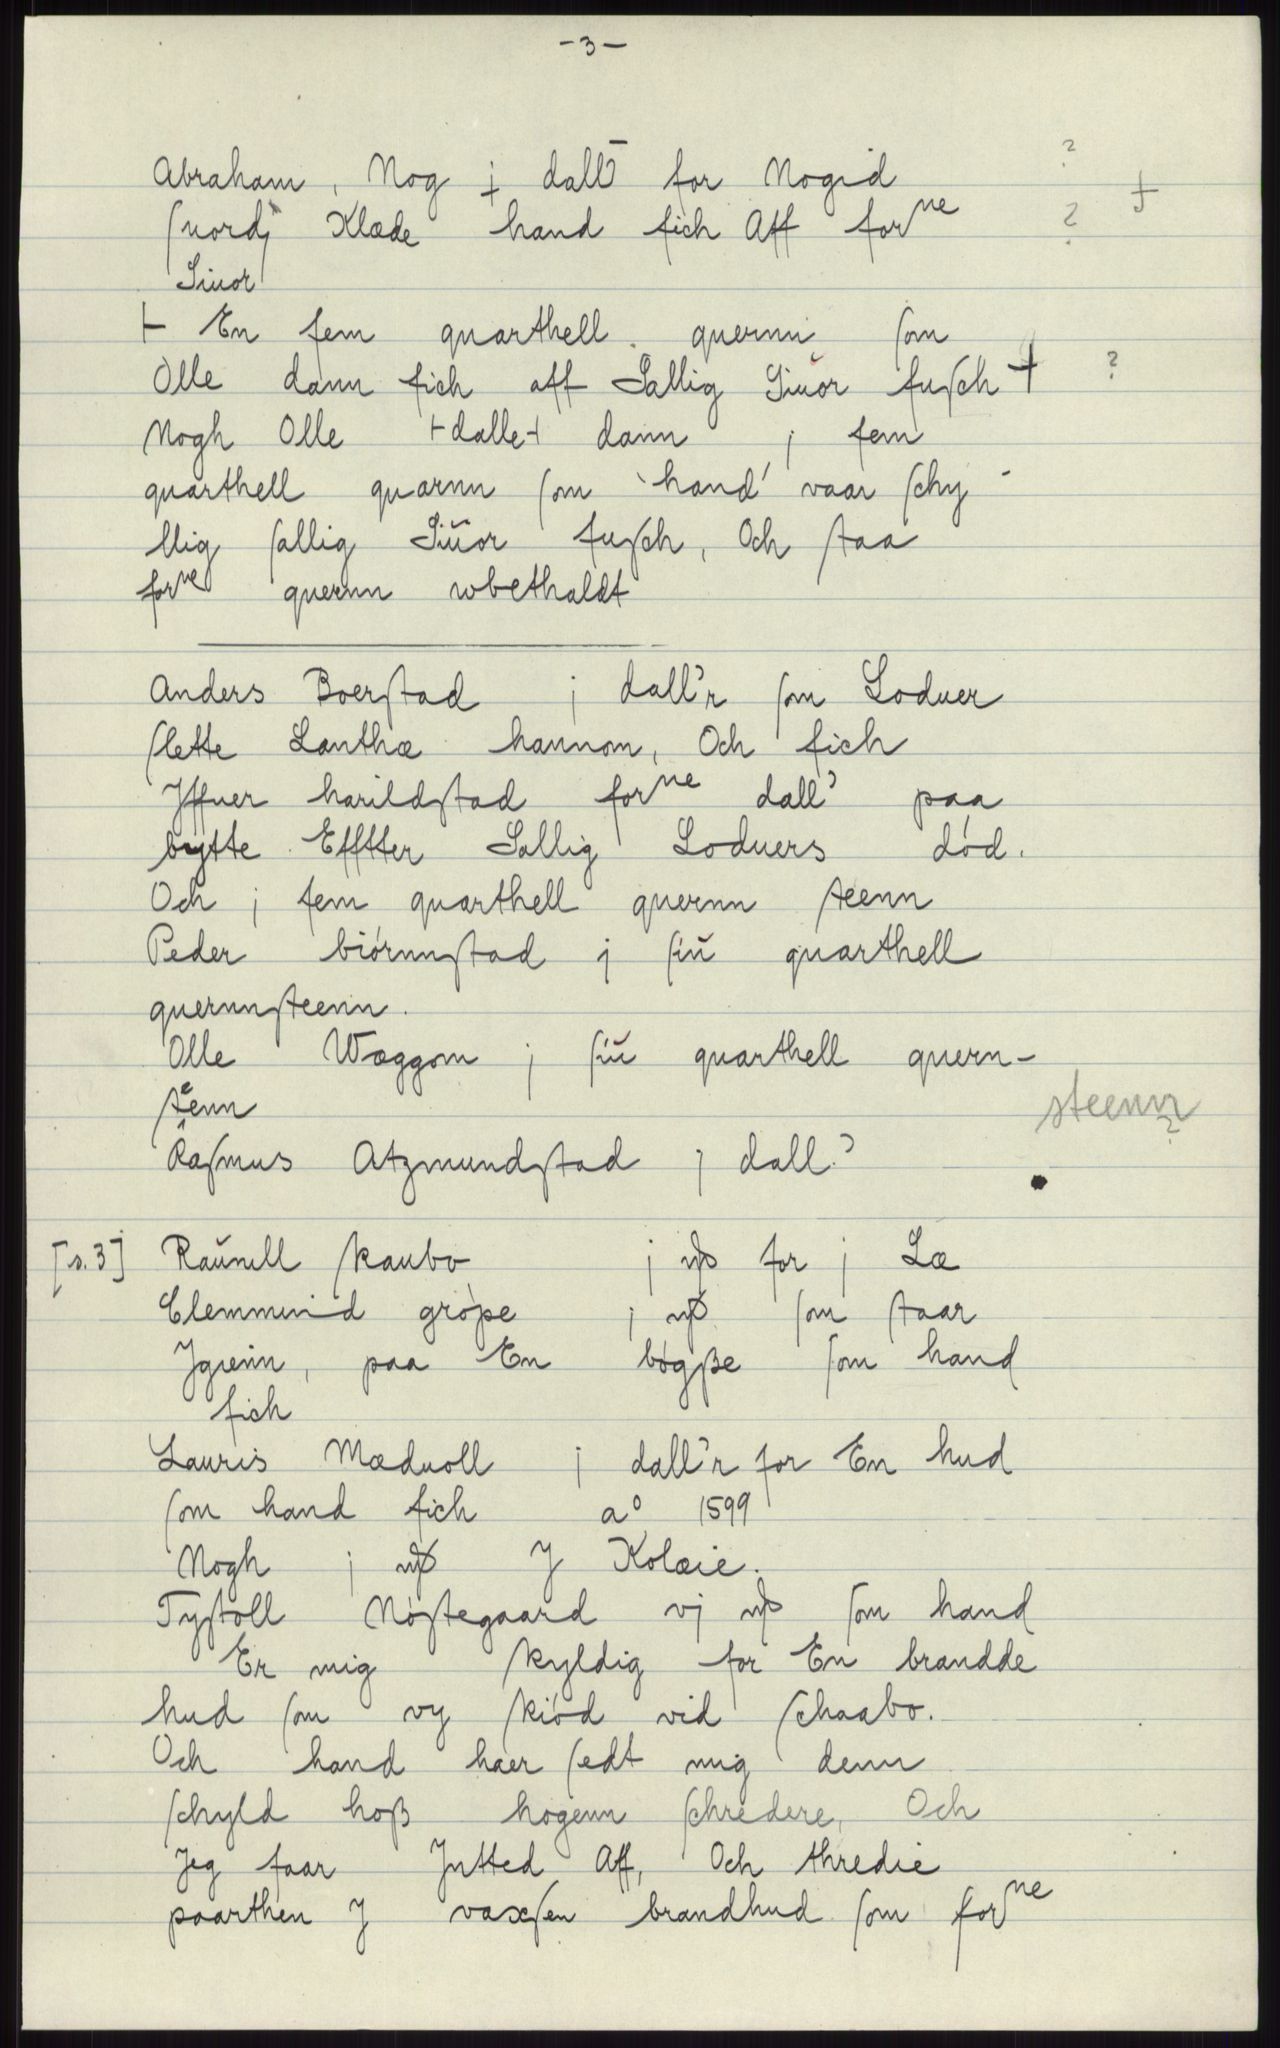 - 3 -
Abraham, Nog j dall for Nogid ? +
ſnord Klæde hand fich Aff forne ?
Siuor
⊢ En fem quarthell quernn ſom
Olle dann fich aff Sallig Siŭor fuſch + ?
Nogh Olle ⊢dalle⊣ dann j fem
quarthell quarnn ſom `hand´ vaar ſchy-
llig ſallig Siŭor fuſch, Och ſtaa
forne quernn wbethaldt
Anders Boerſtad j dall'r ſom Loduer
ſlette Lanthæ hannom, Och fich
Jffuer harildſtad forne dall' paa
bytte Efftter Sallig Loduers död.
Och j fem quarthell quernn ſteenn
Peder biörnnſtad j ſiŭ quarthell
quernnſteenn.
Olle Wæggom j ſiŭ quarthell quern-
ſtenn steenn ?
Raſmus Atzmundſtad j dall'
[s. 3] Raŭnill ſkaubo j for j Læ
Clemmind gröpe j ſom ſtaar
Jgienn, paa En bögße ſom hand
fich
Lauris Mæduoll j dall'r for En hud
ſom hand fich a° 1599
Nogh j J Kolæie.
Tyſtoll Nöſtegaard vj ſom hand
Er mig ſkyldig for En brandde
hud ſom vy ſkiöd vid ſchaabo.
Och hand haer ſedt mig denn
ſchyld hoß hogenn ſchredere, Och
Jeg faar Jntted Aff, Och thredie
paarthen J vaxſen brandhud ſom forne